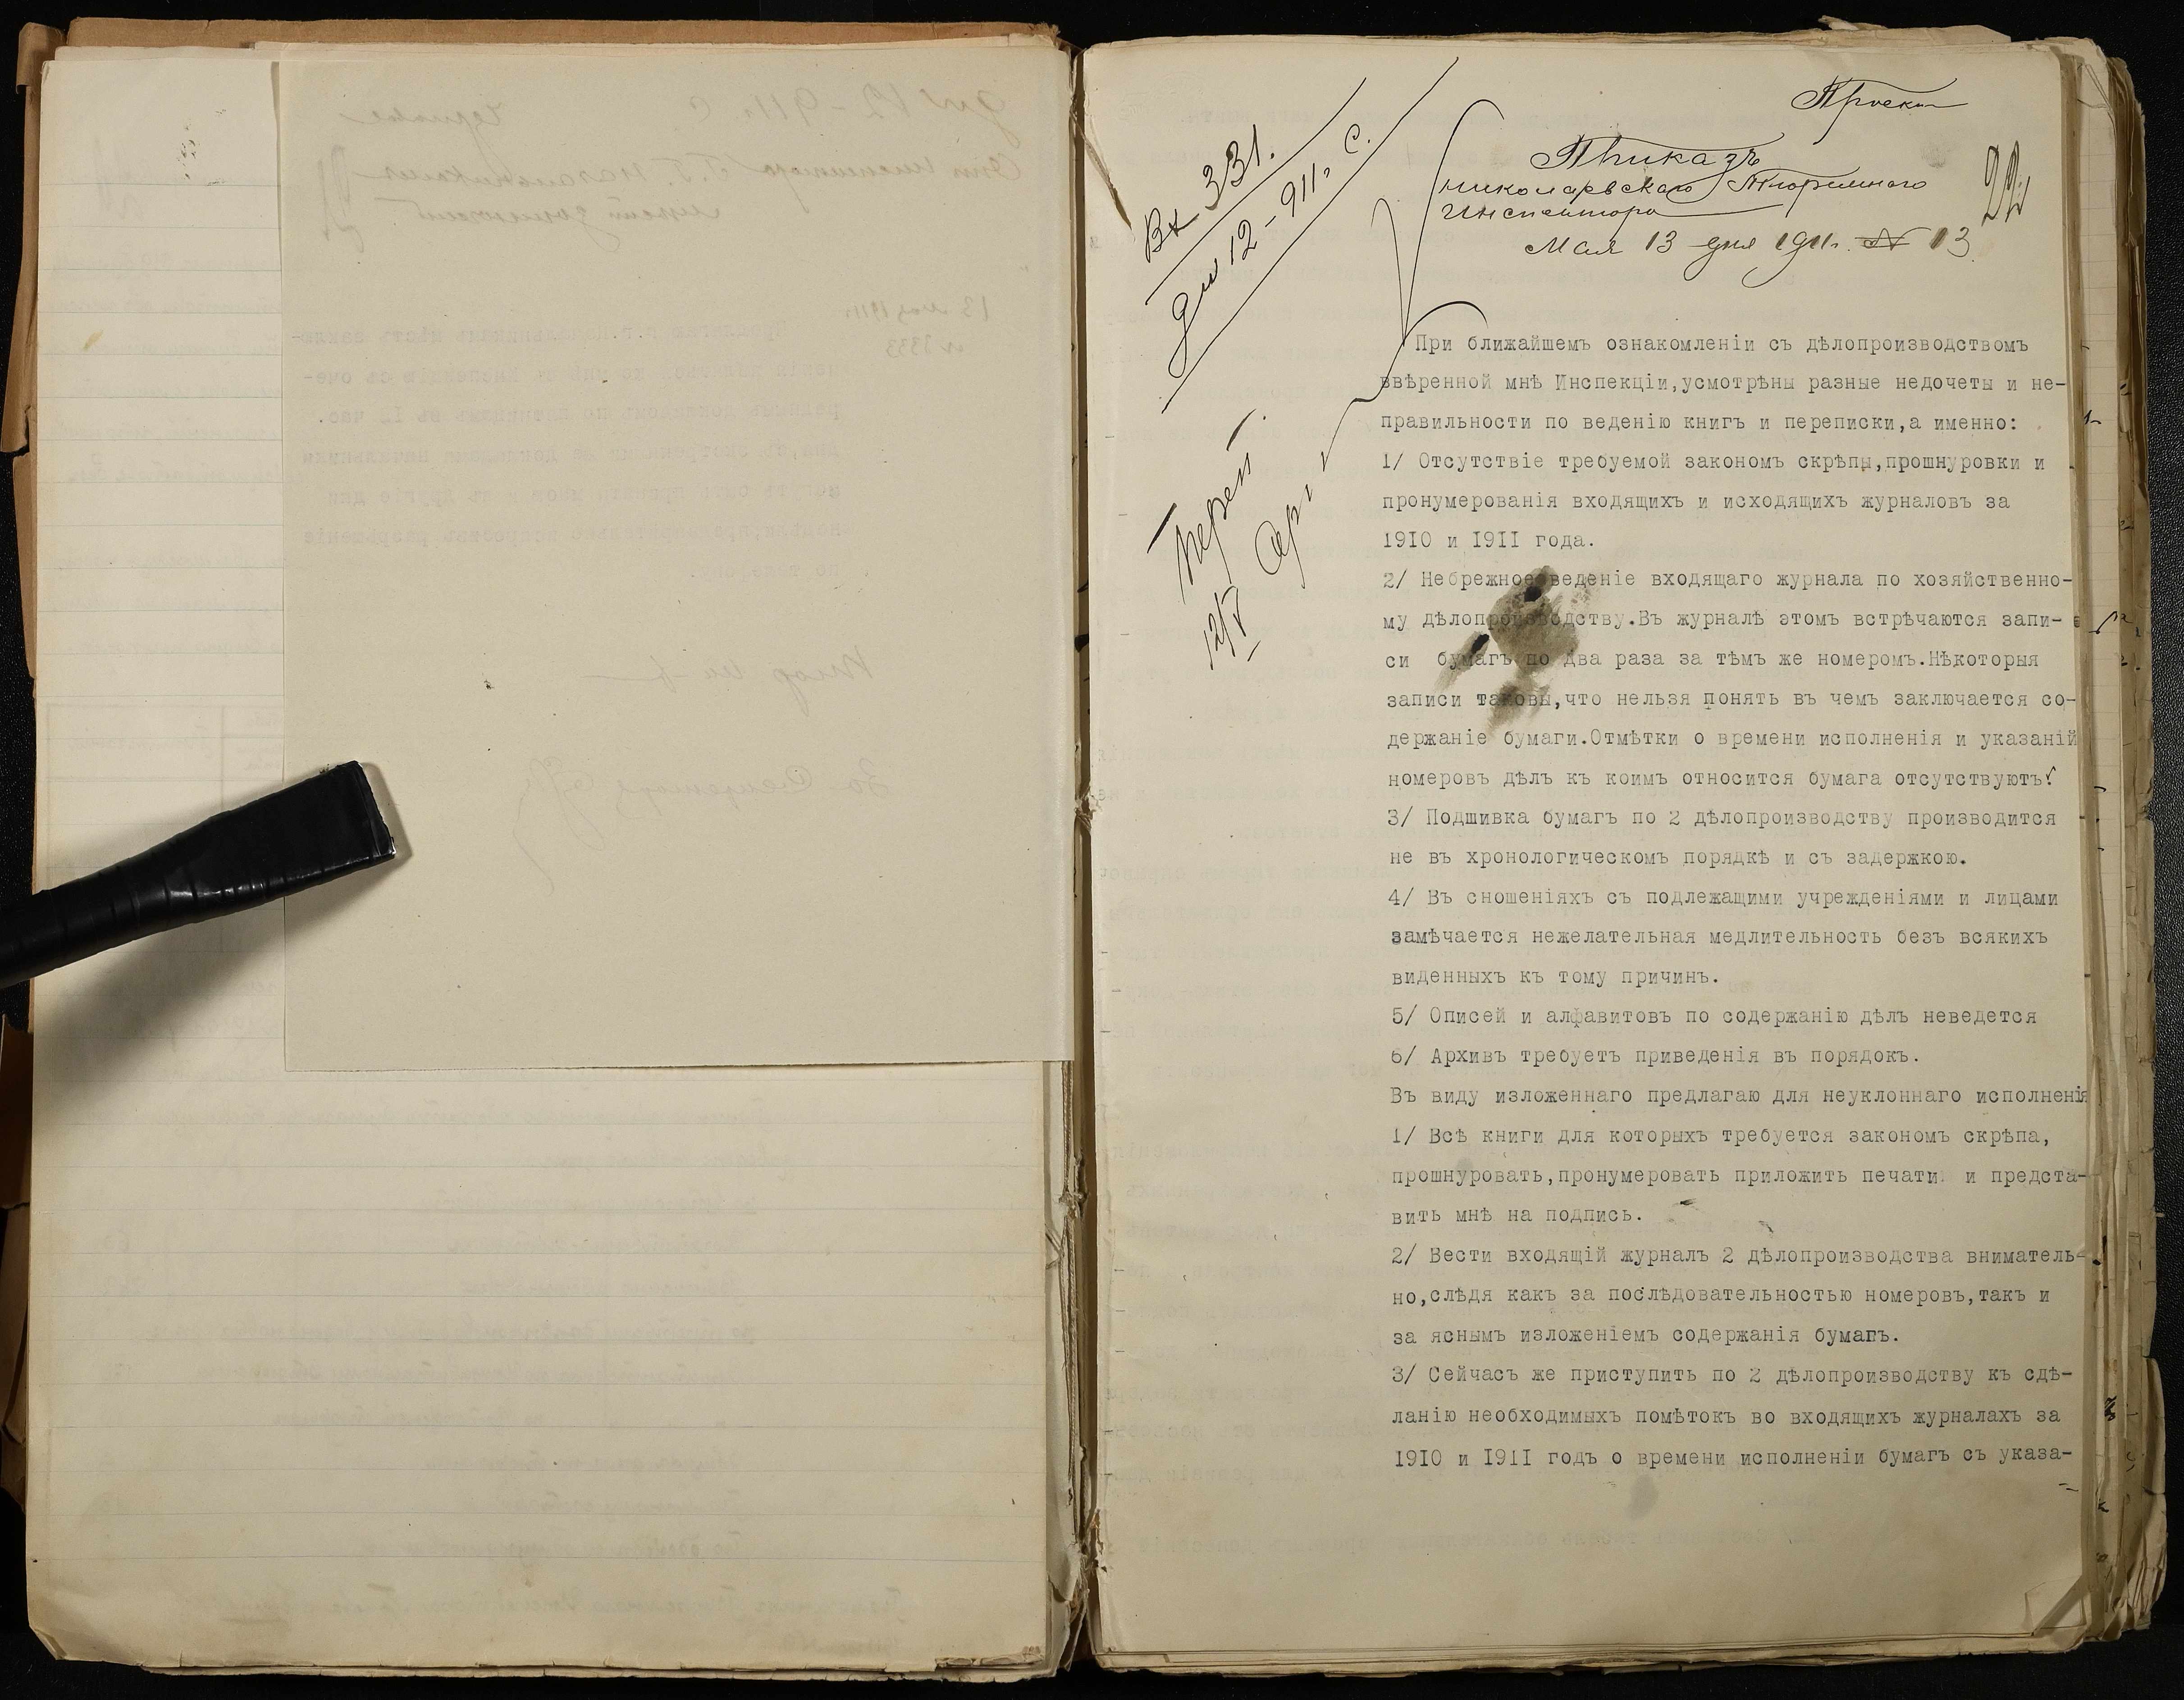 Вх 331.
дѣл 12-911г. С.
Приказъ
Николаевскаго Тюремнаго
Инспектора
Мая 13 дня 1911г. № 13
22
12/V
При ближайшемъ ознакомленіи съ дѣлопроизводствомъ
ввѣренной мнѣ Инспекціи,усмотрѣны разные недочеты и не-
правильности по веденію книгъ и переписки,а именно:
1/ Отсутствіе требуемой закономъ скрѣпы,прошнуровки и
пронумерованія входящихъ и исходящихъ журналовъ за
1910 и 1911 года.
2/ Небрежное веденіе входящаго журнала по хозяйственно-
му дѣлопроизводству.Въ журналѣ этомъ встрѣчаются запи-
си бумагъ по два раза за тѣмъ же номеромъ.Нѣкоторыя
записи таковы,что нельзя понять въ чемъ заключается со-
держаніе бумаги.Отмѣтки о времени исполненія и указаній
номеровъ дѣлъ къ коимъ относится бумага отсутствуютъ.
3/ Подшивка бумагъ по 2 дѣлопроизводству производится
не въ хронологическомъ порядкѣ и съ задержкою.
4/ Въ сношеніяхъ съ подлежащими учрежденіями и лицами
замѣчается нежелательная медлительность безъ всякихъ
виденныхъ къ тому причинъ.
5/ Описей и алфавитовъ по содержанію дѣлъ неведется
6/ Архивъ требуетъ приведенія въ порядокъ.
Въ виду изложеннаго предлагаю для неуклоннаго исполненія
1/ Всѣ книги для которыхъ требуется закономъ скрѣпа,
прошнуровать,пронумеровать приложить печати и предста-
вить мнѣ на подпись.
2/ Вести входящій журналъ 2 дѣлопроизводства вниматель-
но,слѣдя какъ за послѣдовательностью номеровъ,такъ и
за яснымъ изложеніемъ содержанія бумагъ.
3/ Сейчасъ же приступить по 2 дѣлопроизводству къ сдѣ-
ланію необходимыхъ помѣтокъ во входящихъ журналахъ за
1910 и 1911 годъ о времени исполненіи бумагъ съ указа-